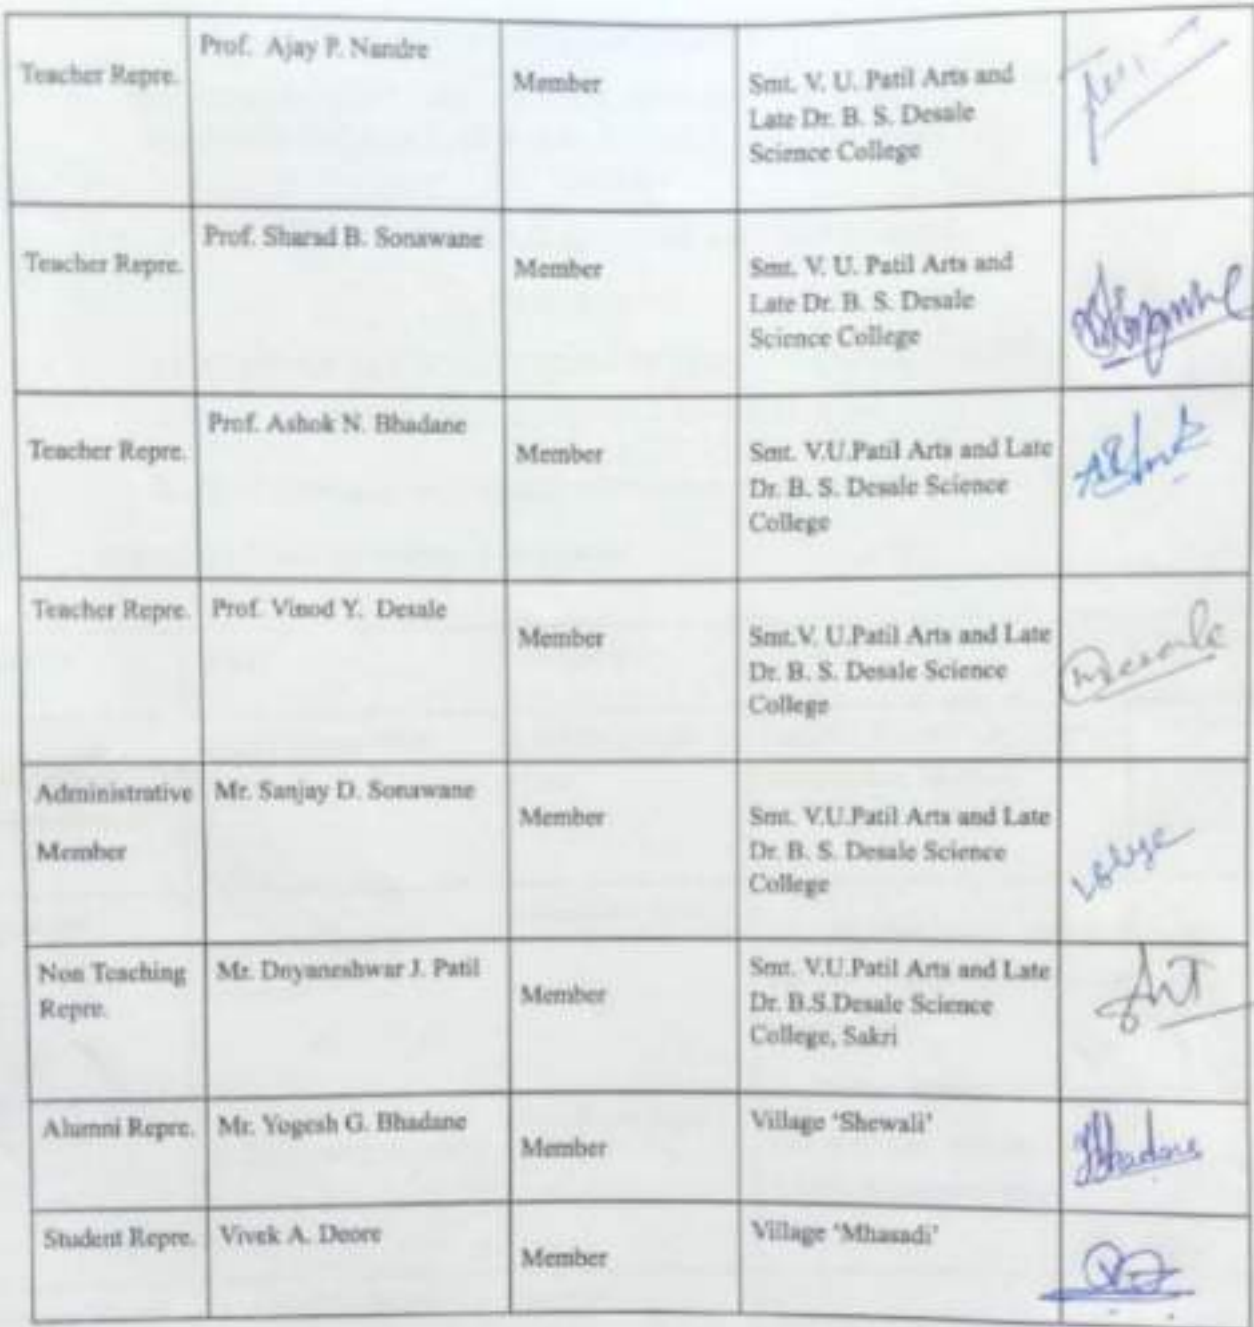 Teacher Repre.
Prof. Ajay P. Nandre
Member
Smt. V. U. Patil Arts and
Late Dr. B. S. Desale
Science College
Teacher Repre.
Prof. Sharad B. Sonawane
Member
Smt. V. U. Patil Arts and
Late Dr. B. S. Desale
Science College
Teacher Repre.
Prof. Ashok N. Bhadane
Member
Smt. V.U.Patil Arts and Late
Dr. B. S. Desale Science
College
Teacher Repre.
Prof. Vinod Y. Desale
Member
Smt.V. U.Patil Arts and Late
Dr. B. S. Desale Science
College
Administrative
Member
Mr. Sanjay D. Sonawane
Member
Smt. V.U.Patil Arts and Late
Dr. B. S. Desale Science
College
Non Teaching
Repre.
Mr. Dnyaneshwar J. Patil
Member
Smt. V.U.Patil Arts and Late
Dr. B.S.Desale Science
College, Sakri
Alumni Repre.
Mr. Yogesh G. Bhadane
Member
Village 'Shewali'
Bhadane
Student Repre.
Vivek A. Deore
Member
Village 'Mhasadi'